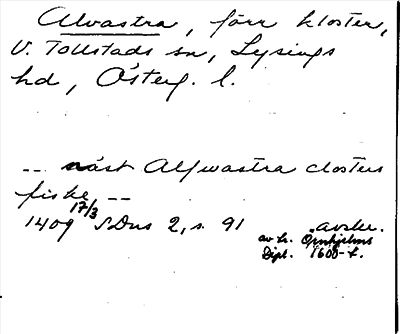 Alvastra, förr kloster,
V. Tollstads sn, Lysings
hd, Österg. l.
-- näst Alfwastra closters
fiske --
17/3
1409 SDns 2, s. 91 avskr.
av h. Örnhjelms
Dipl. 1600-t.